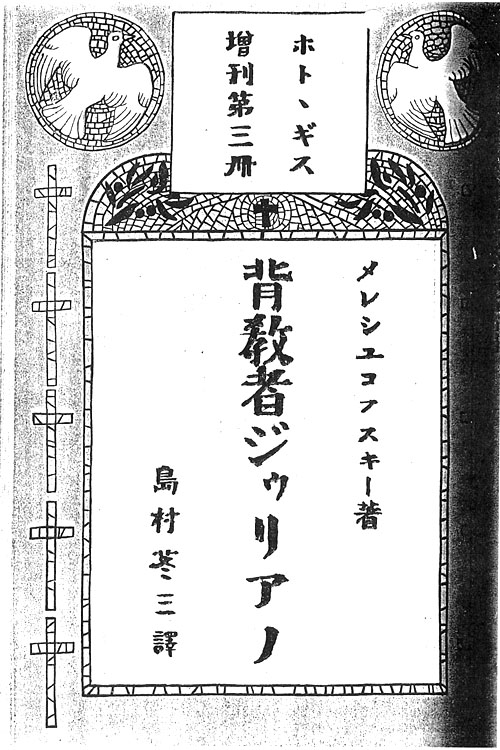 ホトヽギス
増刊第三冊
メレシユコフスキー著
背敎者ジゥリアノ
島村苳三譯